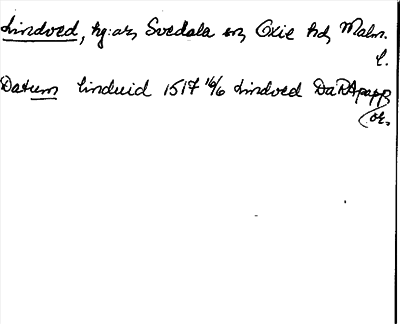 Lindved, hg:ar, Svedala sn, Oxie hd, Malm.
l.
Datum Linduid 1517 16/6 Lindved DaRA papp.
(or.